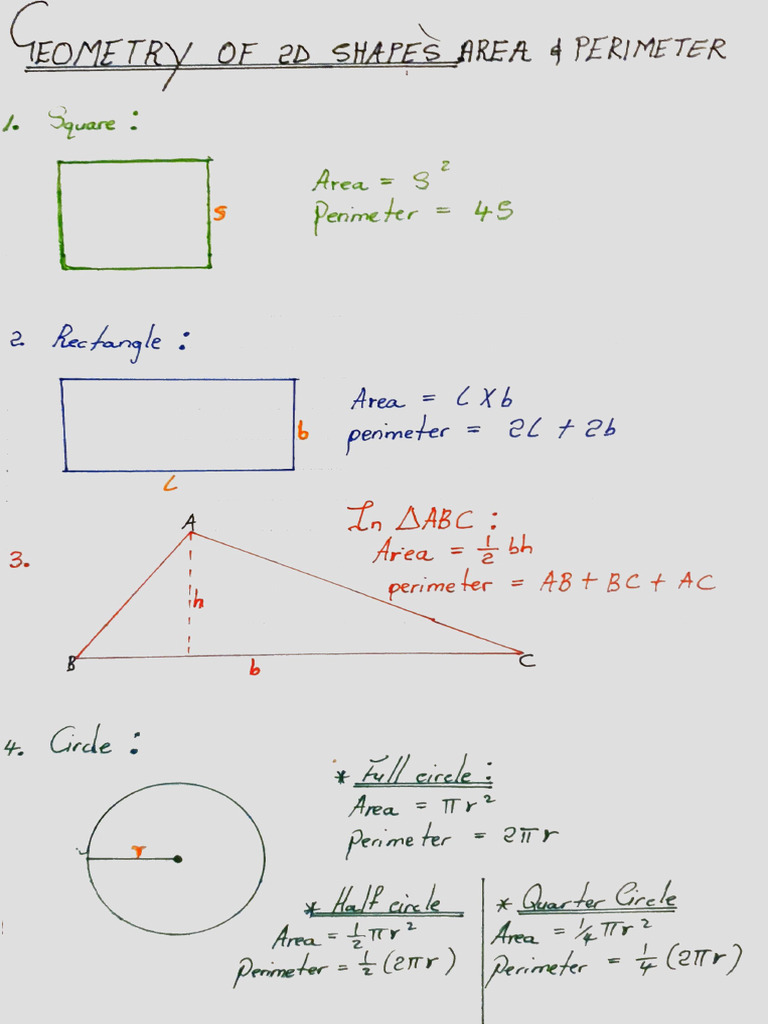 GEOMETRY OF 2D SHAPES AREA & PERIMETER
1. Square :
s
Area = S²
Perimeter = 4S
2. Rectangle :
b
L
Area = L X b
perimeter = 2L + 2b
3.
A
h
B
b
C
In △ABC :
Area = 1/2 bh
perimeter = AB + BC + AC
4. Circle :
r
* Full circle :
Area = πr²
Perimeter = 2πr
* Half circle
Area = 1/2 πr²
Perimeter = 1/2 (2πr)
* Quarter Circle
Area = 1/4 πr²
Perimeter = 1/4 (2πr)